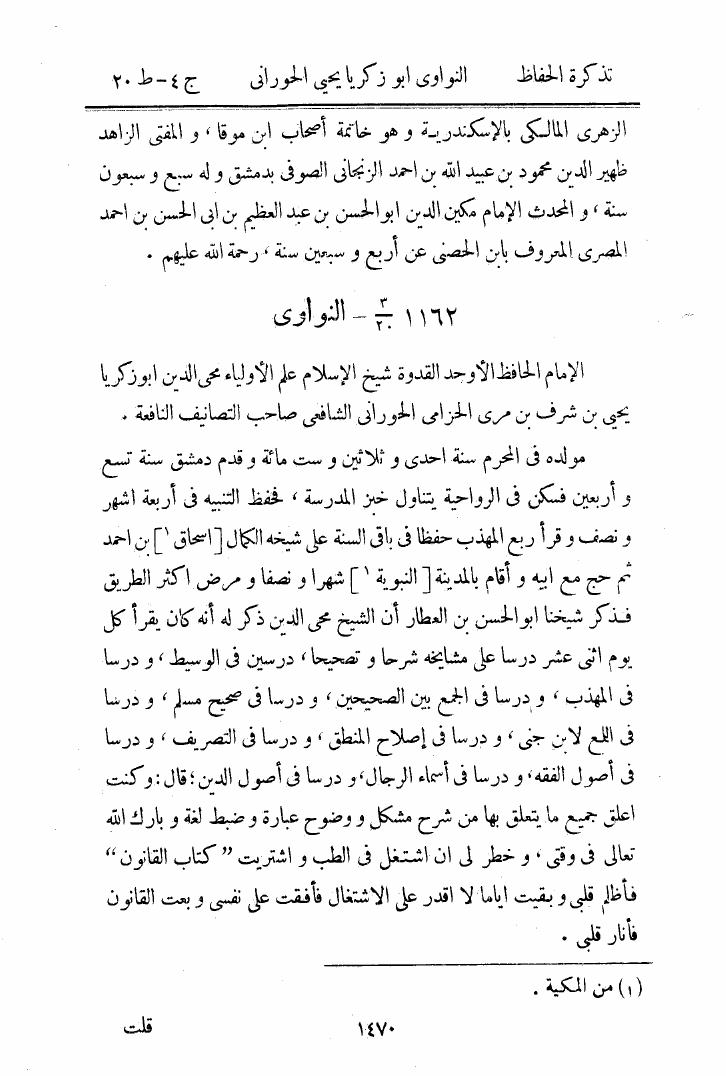 تذكرة الحفاظ النواوى ابو زكريا يحيى الحورانى ج ٤ - ط ٢٠
الزهرى المالكى بالإسكندرية و هو خاتمة أصحاب ابن موقا ، و المفتى الزاهد
ظهير الدين محمود بن عبيد الله بن احمد الزنجانى الصوفى بدمشق و له سبع و سبعون
سنة ، و المحدث الإمام مكين الدين ابو الحسن بن عبد العظيم بن ابى الحسن بن احمد
المصرى المعروف بابن الحصنى عن أربع و سبعين سنة ، رحمة الله عليهم .
١١٦٢ ٣/٢٠ - النواوى
الإمام الحافظ الأوحد القدوة شيخ الإسلام علم الأولياء محى الدين ابو زكريا
يحيى بن شرف بن مرى الحزامى الحورانى الشافعى صاحب التصانيف النافعة .
مولده فى المحرم سنة احدى و ثلاثين و ست مائة و قدم دمشق سنة تسع
و أربعين فسكن فى الرواحية يتناول خبز المدرسة ، فحفظ التنبيه فى أربعة اشهر
و نصف و قرأ ربع المهذب حفظا فى باقى السنة على شيخه الكمال [ اسحاق ١ ] بن احمد
ثم حج مع ابيه و أقام بالمدينة [ النبوية ١ ] شهرا و نصفا و مرض اكثر الطريق
فذكر شيخنا ابو الحسن بن العطار أن الشيخ محى الدين ذكر له أنه كان يقرأ كل
يوم اثنى عشر درسا على مشايخه شرحا و تصحيحا ، درسين فى الوسيط ، و درسا
فى المهذب ، و درسا فى الجمع بين الصحيحين ، و درسا فى صحيح مسلم ، و درسا
فى اللمع لابن جنى ، و درسا فى إصلاح المنطق ، و درسا فى التصريف ، و درسا
فى أصول الفقه ، و درسا فى أسماء الرجال ، و درسا فى أصول الدين ؛ قال : و كنت
اعلق جميع ما يتعلق بها من شرح مشكل و وضوح عبارة و ضبط لغة و بارك الله
تعالى فى وقتى ، و خطر لى ان اشتغل فى الطب و اشتريت ” كتاب القانون “
فأظلم قلبى و بقيت اياما لا اقدر على الاشتغال فأفقت على نفسى و بعت القانون
فأنار قلبى .
(١) من المكية .
١٤٧٠ قلت